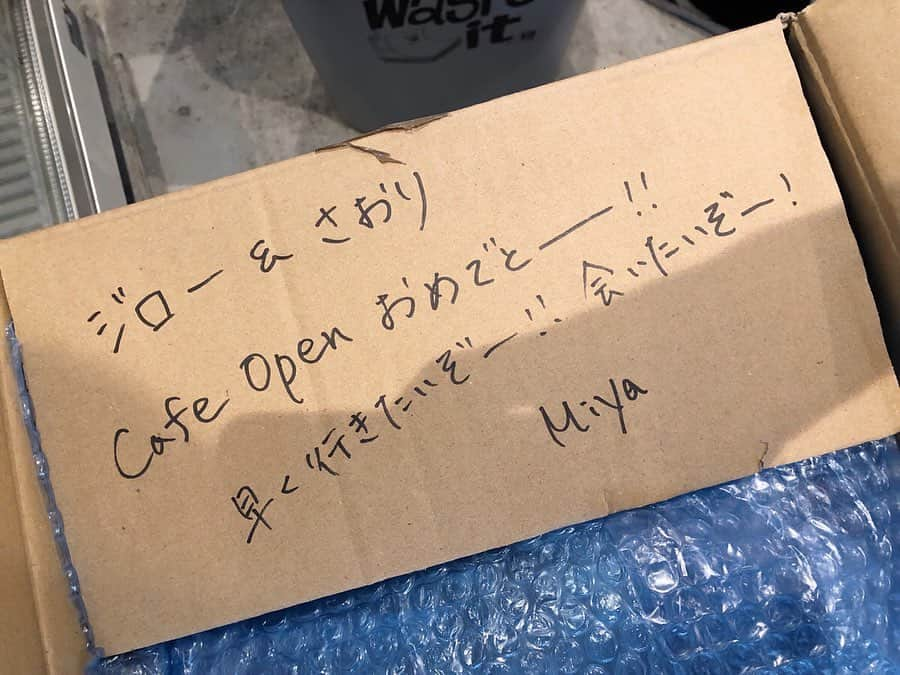 Waste
it.
ジロー & さおり
Cafe Open おめでとー!!
早く行きたいぞー!! 会いたいぞー!
Miya